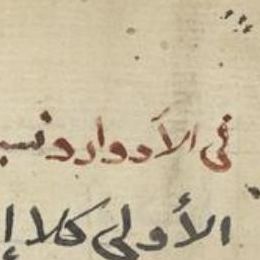 في الأدوار ونسب
الأولى كلا إ